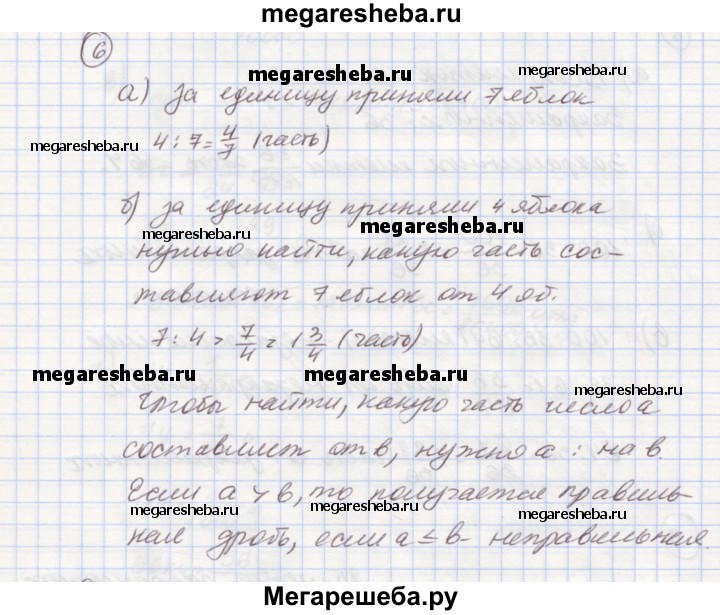 megaresheba.ru
6
megaresheba.ru
megaresheba.ru
а) за единицу приняли 7 яблок
megaresheba.ru
4 : 7 = 4/7 (часть)
б) за единицу приняли 4 яблока
megaresheba.ru
megaresheba.ru
нужно найти, какую часть сос-
тавляют 7 яблок от 4 яб.
7 : 4 = 7/4 = 1 3/4 (часть)
megaresheba.ru
megaresheba.ru
megaresheba.ru
Чтобы найти, какую часть число a
составляет от b, нужно a : на b.
Если a > b, то получается правиль-
megaresheba.ru
megaresheba.ru
ная дробь, если a ≤ b - неправильная.
Мегарешеба.ру